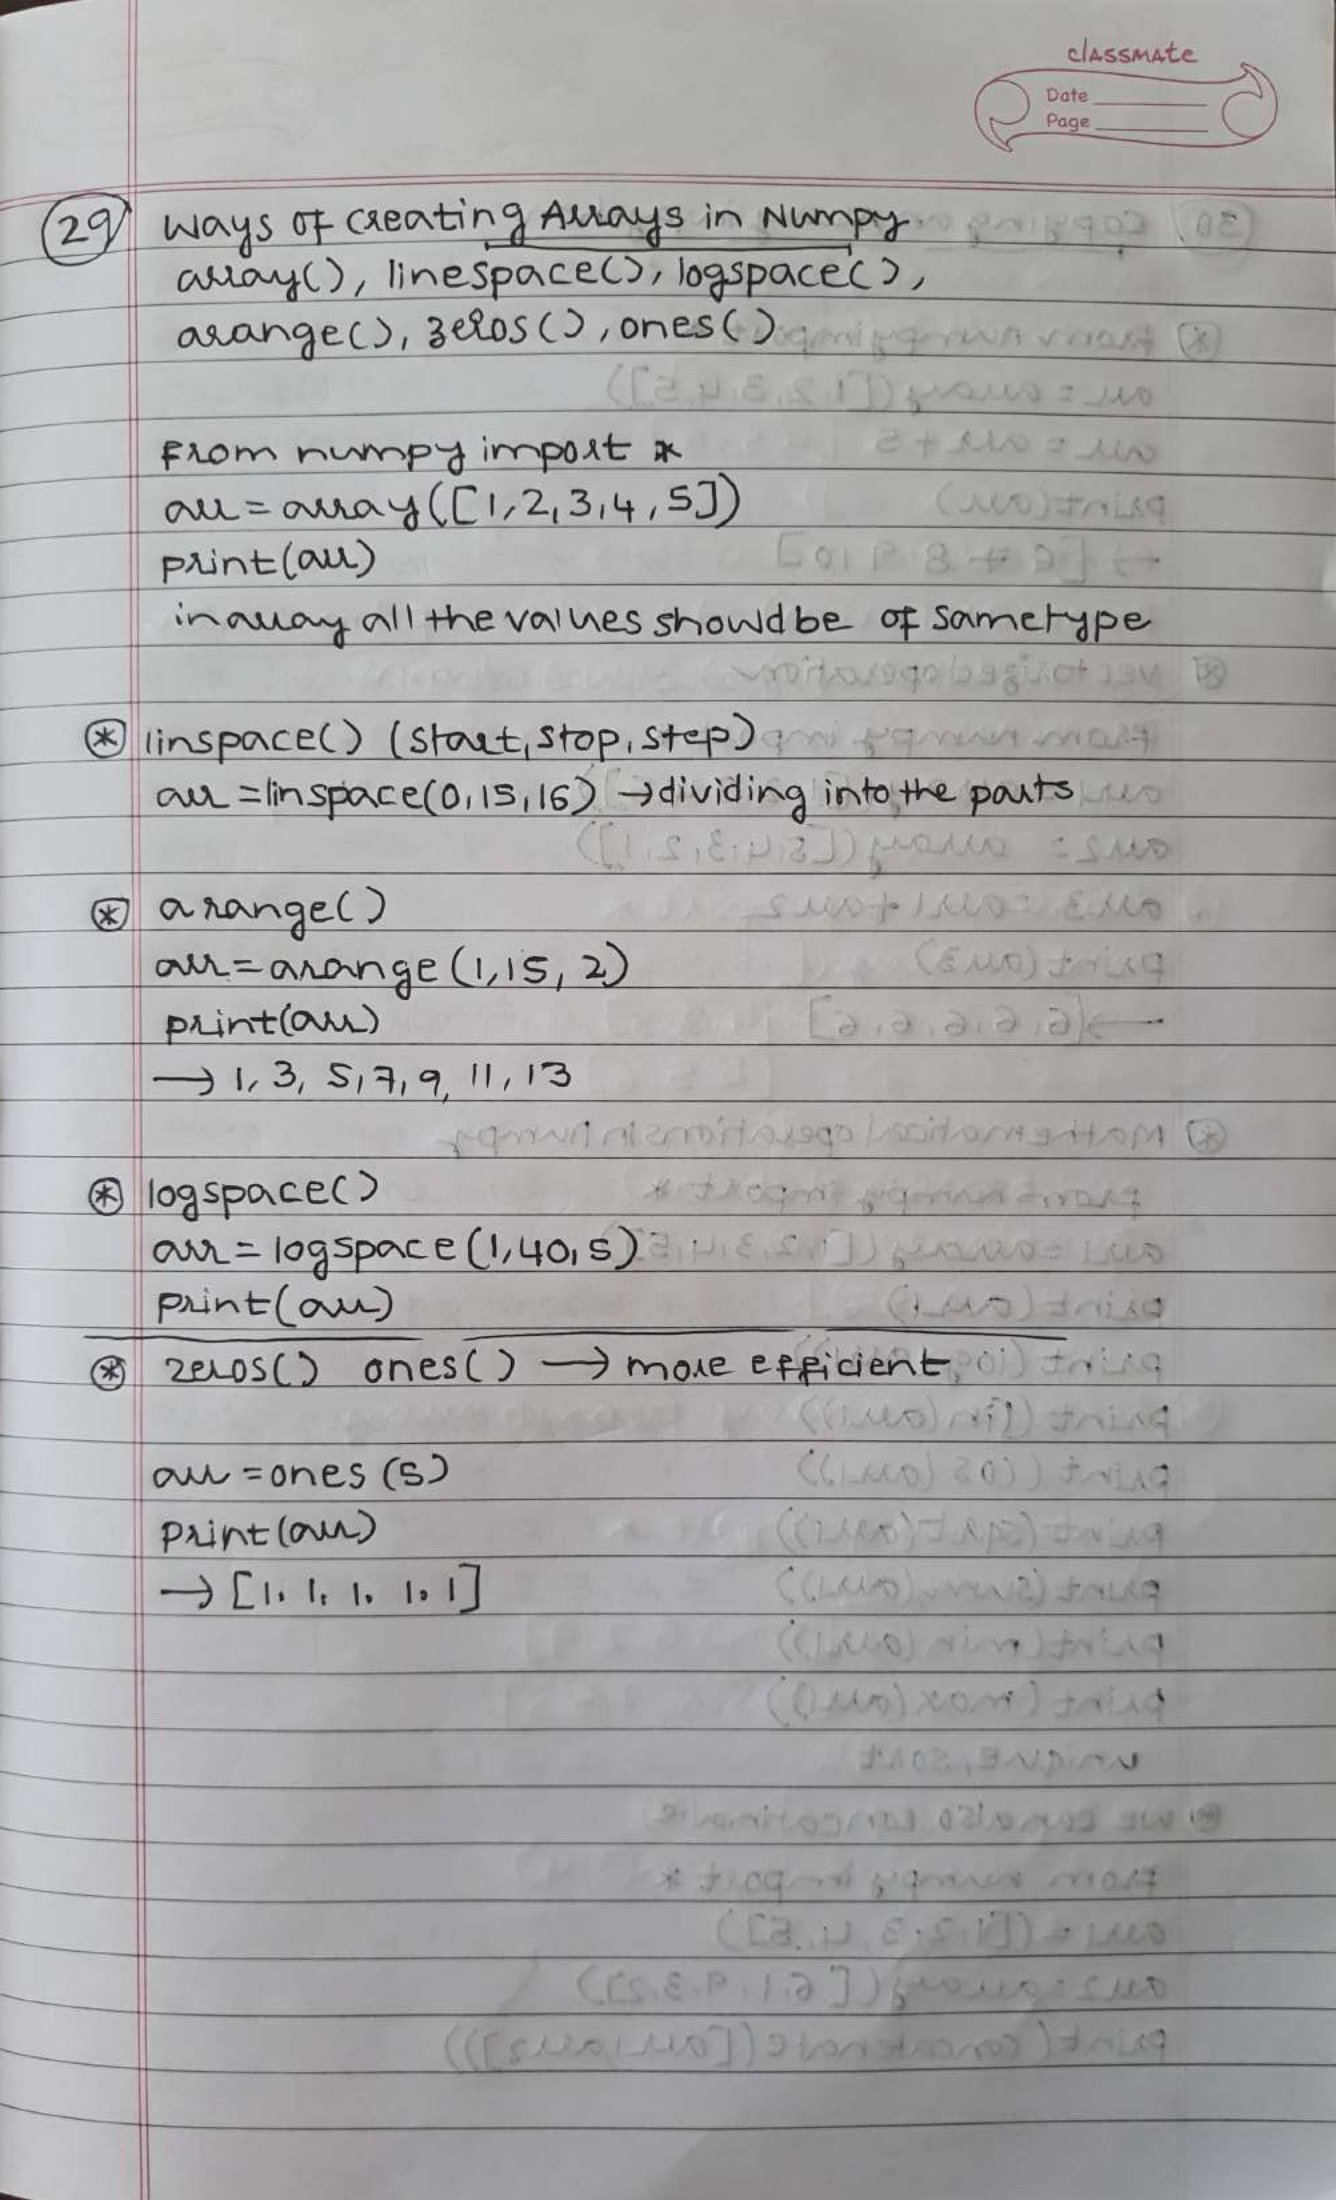 classmate
Date
Page
29 Ways of Creating Arrays in Numpy
array(), linespace(), logspace(),
arange(), zeros(), ones()
from numpy import *
arr = array([1,2,3,4,5])
print(arr)
in array all the values should be of same type
* linspace() (start, stop, step)
arr = linspace(0,15,16) → dividing into the parts
* arange()
arr = arange(1,15,2)
print(arr)
→ 1, 3, 5, 7, 9, 11, 13
* logspace()
arr = logspace(1,40,5)
print(arr)
* zeros() ones() → more efficient
arr = ones(5)
print(arr)
→ [1. 1. 1. 1. 1]